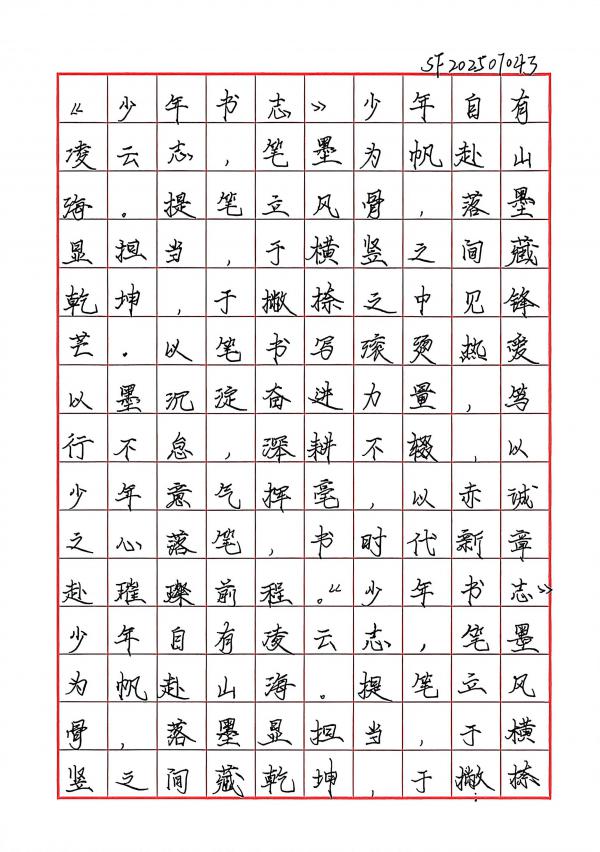 SF202507043
《少年书志》少年自有
凌云志，笔墨为帆赴山
海。提笔立风骨，落墨
显担当，于横竖之间藏
乾坤，于撇捺之中见锋
芒。以笔书写滚烫热爱
以墨沉淀奋进力量，笃
行不怠，深耕不辍，以
少年意气挥毫，以赤诚
之心落笔，书时代新章
赴璀璨前程。《少年书志》
少年自有凌云志，笔墨
为帆赴山海。提笔立风
骨，落墨显担当，于横
竖之间藏乾坤，于撇捺